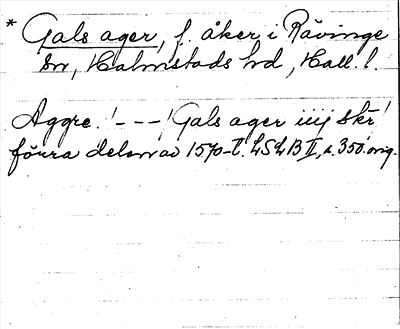 * Gals ager, f. åker i Rävinge
sn, Halmstads hd, Hall. l.
Aggre. ! - - - ! Gals ager iiij skr !
förra delen av 1570-t. LSLB II, s. 350. orig.